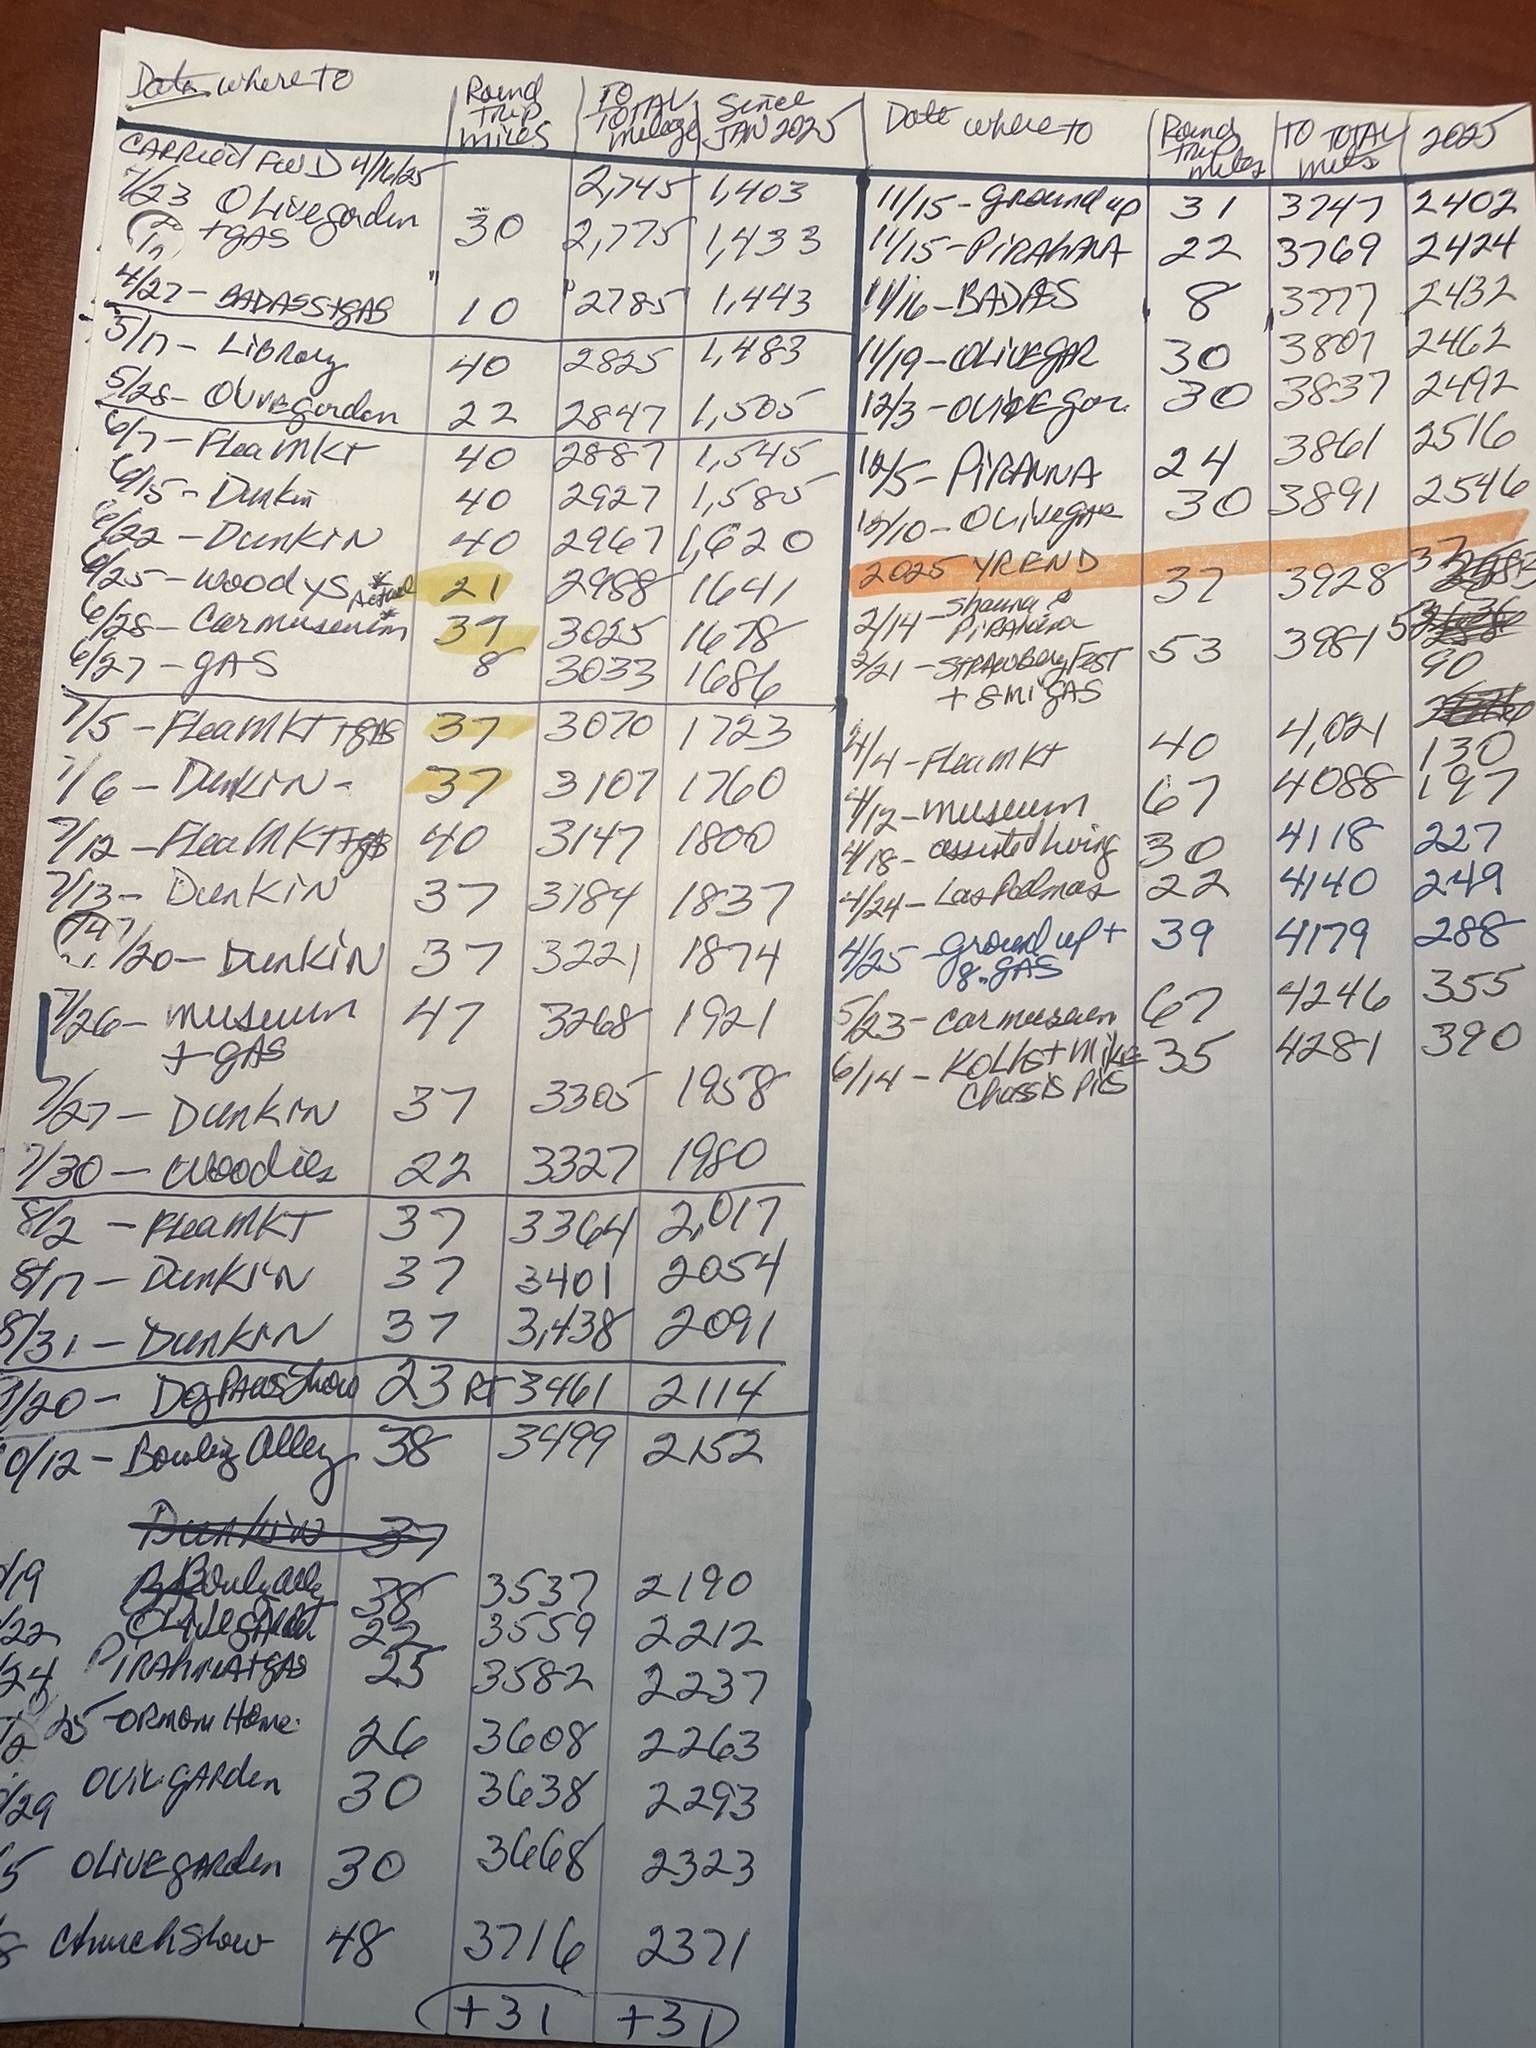 Date where TO | Round Trip miles | TO TOTAL mileage | Since JAN 2025
CARRIED FWD 4/16/25 2,745 1,403
4/23 OLive garden + gas 30 2,775 1,433
4/27 - BADASS + gas 10 2785 1,443
5/17 - LiBrary 40 2825 1,483
5/28 - OLIVE garden 22 2847 1,505
6/7 - Flea MKT 40 2887 1,545
6/15 - Dunkin 40 2927 1,585
6/22 - DunKiN 40 2967 1,620
6/25 - woodys Actual 21 2988 1641
6/28 - Car museum 37 3025 1678
6/27 - gas 8 3033 1686
7/5 - Flea MKT + gas 37 3070 1723
7/6 - DunKiN - 37 3107 1760
7/12 - Flea MKT + gas 40 3147 1800
7/13 - DunKiN 37 3184 1837
7/20 - DunKiN 37 3221 1874
7/26 - museum + gas 47 3268 1921
7/27 - DunKiN 37 3305 1958
7/30 - woodies 22 3327 1980
8/2 - Flea MKT 37 3364 2,017
8/17 - DunKiN 37 3401 2054
8/31 - DunKiN 37 3,438 2091
/20 - Dog Paws Show 23 RT 3461 2114
0/12 - Bowling Alley 38 3499 2152
Dunkin 37
/19 Bowling alley 38 3537 2190
/22 Olive garden 22 3559 2212
/24 PiRAhna + gas 25 3582 2237
25 - ORMOND Home 26 3608 2263
/29 OLIV. GARden 30 3638 2293
/5 OLIVE GARden 30 3668 2323
8 Church Show 48 3716 2371
+31 +31
Date where to | Round Trip miles | TO TOTAL miles | 2025
11/15 - ground up 31 3747 2402
11/15 - PiRAhNA 22 3769 2424
11/16 - BADASS 8 3777 2432
11/19 - OLIVE GAR 30 3807 2462
12/3 - OLIVE gar. 30 3837 2492
12/5 - PiRANNA 24 3861 2516
12/10 - OLive gar 30 3891 2546
2025 YREND
2/14 - Shauna & PiRAhna 37 3928 37
2/21 - STRAWBery FEST + 8 mi gas 53 3981 53
90
4/4 - Flea mkt 40 4,021 130
4/12 - museum 67 4088 197
4/18 - assisted living 30 4118 227
4/24 - Las Palmas 22 4140 249
4/25 - ground up + 8. gas 39 4179 288
5/23 - car museum 67 4246 355
6/14 - Kohls + Mike Chassis Pics 35 4281 390